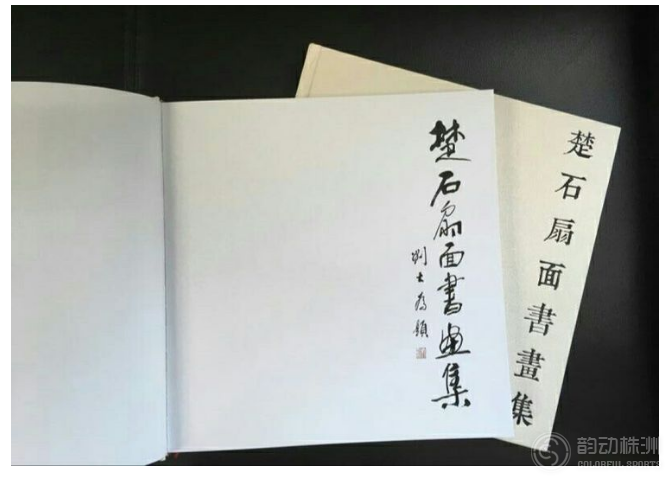 楚石扇面書画集
刘士为题
楚石扇面書畫集
韵动株洲
COLORFUL SPORTS